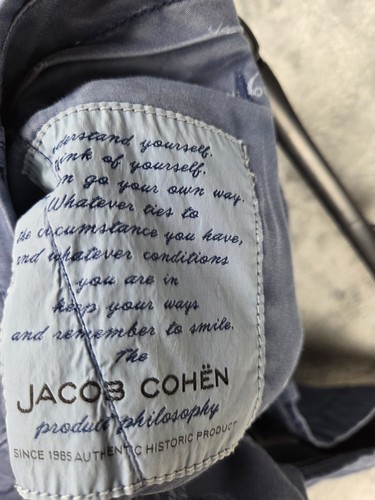 derstand yourself.
ink of yourself.
n go your own way.
Whatever ties to
the circumstance you have,
and whatever conditions
you are in
keep your ways
and remember to smile.
The
JACOB COHËN
product philosophy
SINCE 1985 AUTHENTIC HISTORIC PRODUCT